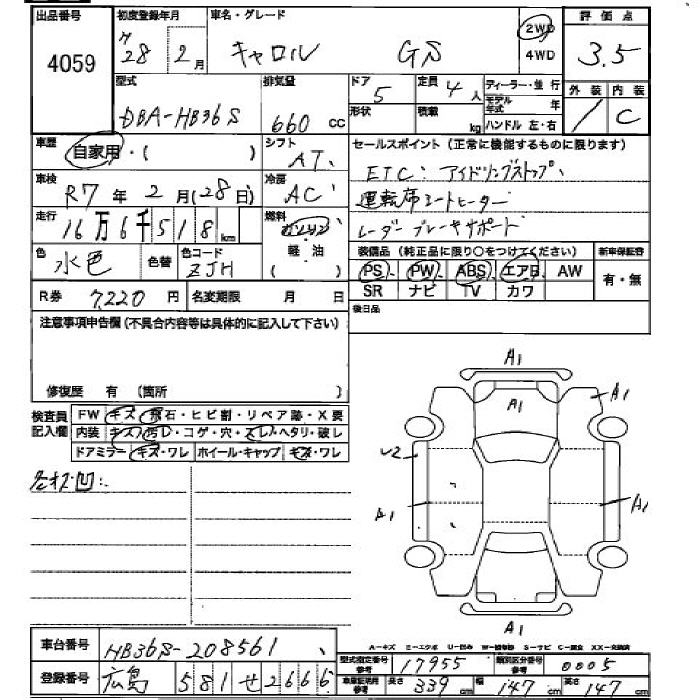 出品番号 初度登録年月 車名・グレード 評価点
4059 28 2月 キャロル GS 2WD 4WD 3.5
外装 内装
型式 排気量 ドア 定員 ディーラー・並行
DBA-HB36S 660 cc 5 4人 モデル年式 年
形状 積載 kg ハンドル 左・右 1 C
車歴 自家用・( ) シフト AT セールスポイント(正常に機能するものに限ります)
ETC. アイドリングストップ、
車検 R7年2月(28日) 冷房 AC 運転席シートヒーター
走行 16万6千518km 燃料 ガソリン 軽・油 レーダーブレーキサポート
色 水色 色替 色コード ZJH 装備品(純正品に限り○をつけてください) 新車保証書
PS PW ABS エアB AW 有・無
R券 7,220円 名変期限 月 日 SR ナビ TV カワ
注意事項申告欄(不具合内容等は具体的に記入して下さい) 後日品
修復歴 有 (箇所 )
検査員記入欄 FW キズ・飛石・ヒビ割・リペア跡・X要
内装 キズ・汚レ・コゲ・穴・スレ・ヘタリ・破レ
ドアミラー キズ・ワレ ホイール・キャップ キズ・ワレ
各キズ凹
A1
A1 A1
U2
A1 A1
A1
A-キズ E-エクボ U-凹み W-補修跡 S-サビ C-腐食 XX-交換済
車台番号 HB36S-208561
型式指定番号 参考 17955 類別区分番号 参考 0005
登録番号 広島 581 せ 2666
車庫証明用 参考 長さ 339cm 幅 147cm 高さ 147cm